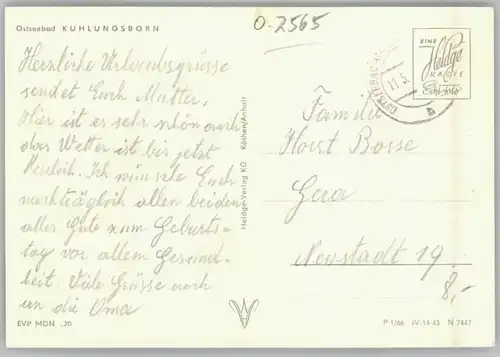 Ostseebad KUHLUNGSBORN
O-2565
Herrliche Urlaubsgrüsse
sendet Euch Mutter,
Hier ist es sehr schön auch
das Wetter ist bis jetzt
herrlich. Ich wünsche Euch
nachträglich allen beiden
alles Gute zum Geburts-
tag vor allem Gesund-
heit. Viele Grüsse auch
an die Oma
EVP MDN ,20
Heldge-Verlag KG Köthen/Anhalt
EINE
Heldge
KARTE
Echt Foto
11.5.
b
Familie
Horst Bosse
Gera
Neustadt 19.
8,-
P 1/66 IV-14-45 N 7447